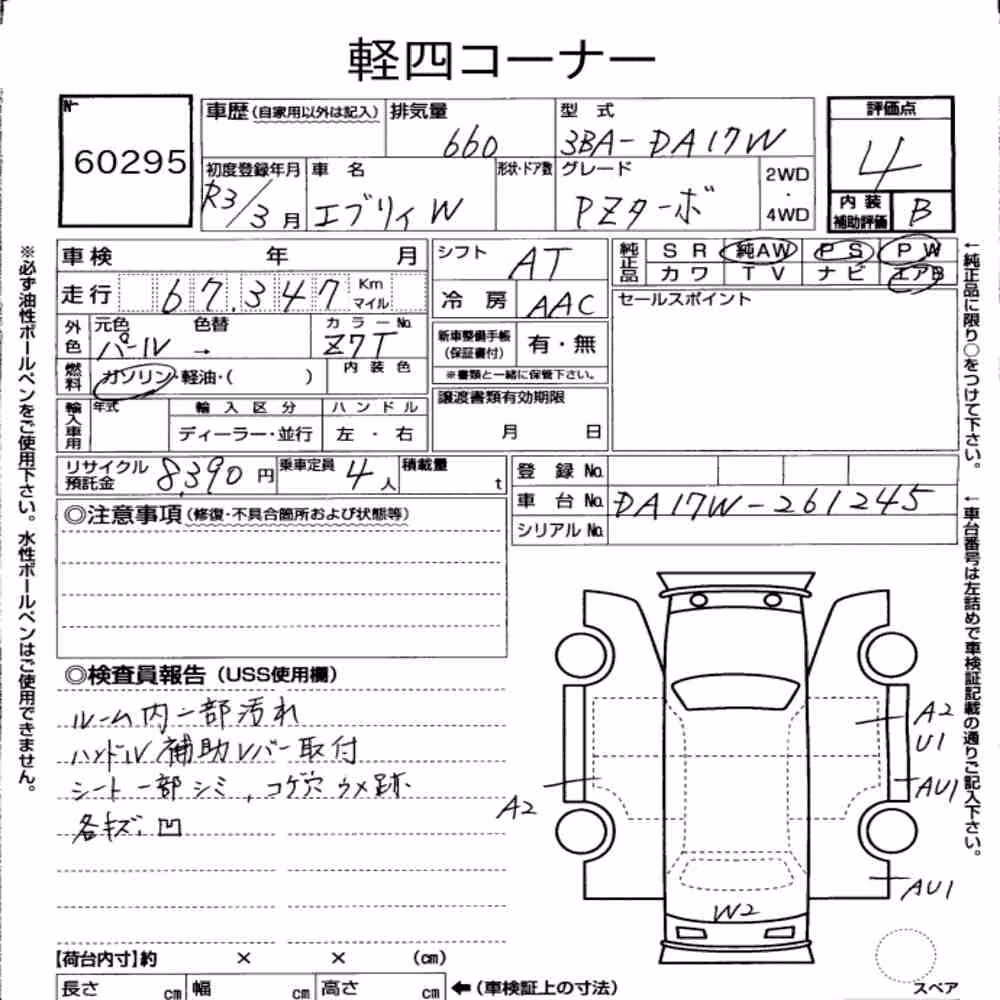 軽四コーナー
No.
60295
車歴(自家用以外は記入)
排気量
660
型 式
3BA-DA17W
評価点
4
初度登録年月
R3/3月
車 名
エブリィW
形状・ドア数
グレード
PZターボ
2WD
・
4WD
内装補助評価
B
車検 年 月
走行 67,347 Km マイル
外色
元色
パール
色替
→
カラーNo.
Z7T
燃料
ガソリン・軽油・( )
内装色
輸入車用
年式
輸入区分
ディーラー・並行
ハンドル
左 ・ 右
シフト
AT
冷 房
AAC
新車整備手帳
(保証書付)
有・無
※書類と一緒に保管下さい。
譲渡書類有効期限
月 日
純正品
SR 純AW PS PW
カワ TV ナビ エアB
セールスポイント
リサイクル預託金 8,390円
乗車定員 4人
積載量 t
登 録 No.
車 台 No. DA17W-261245
シリアル No.
◎注意事項(修復・不具合箇所および状態等)
◎検査員報告(USS使用欄)
ルーム内一部汚れ
ハンドル補助レバー取付
シート一部シミ,コゲ穴ウメ跡
各キズ.凹
A2
U1
AU1
A2
AU1
W2
【荷台内寸】約 × × (cm)
長さ cm 幅 cm 高さ cm ←(車検証上の寸法)
スペア
※必ず油性ボールペンをご使用下さい。水性ボールペンはご使用できません。
←純正品に限り○をつけて下さい。
←車台番号は左詰めで車検証記載の通りご記入下さい。